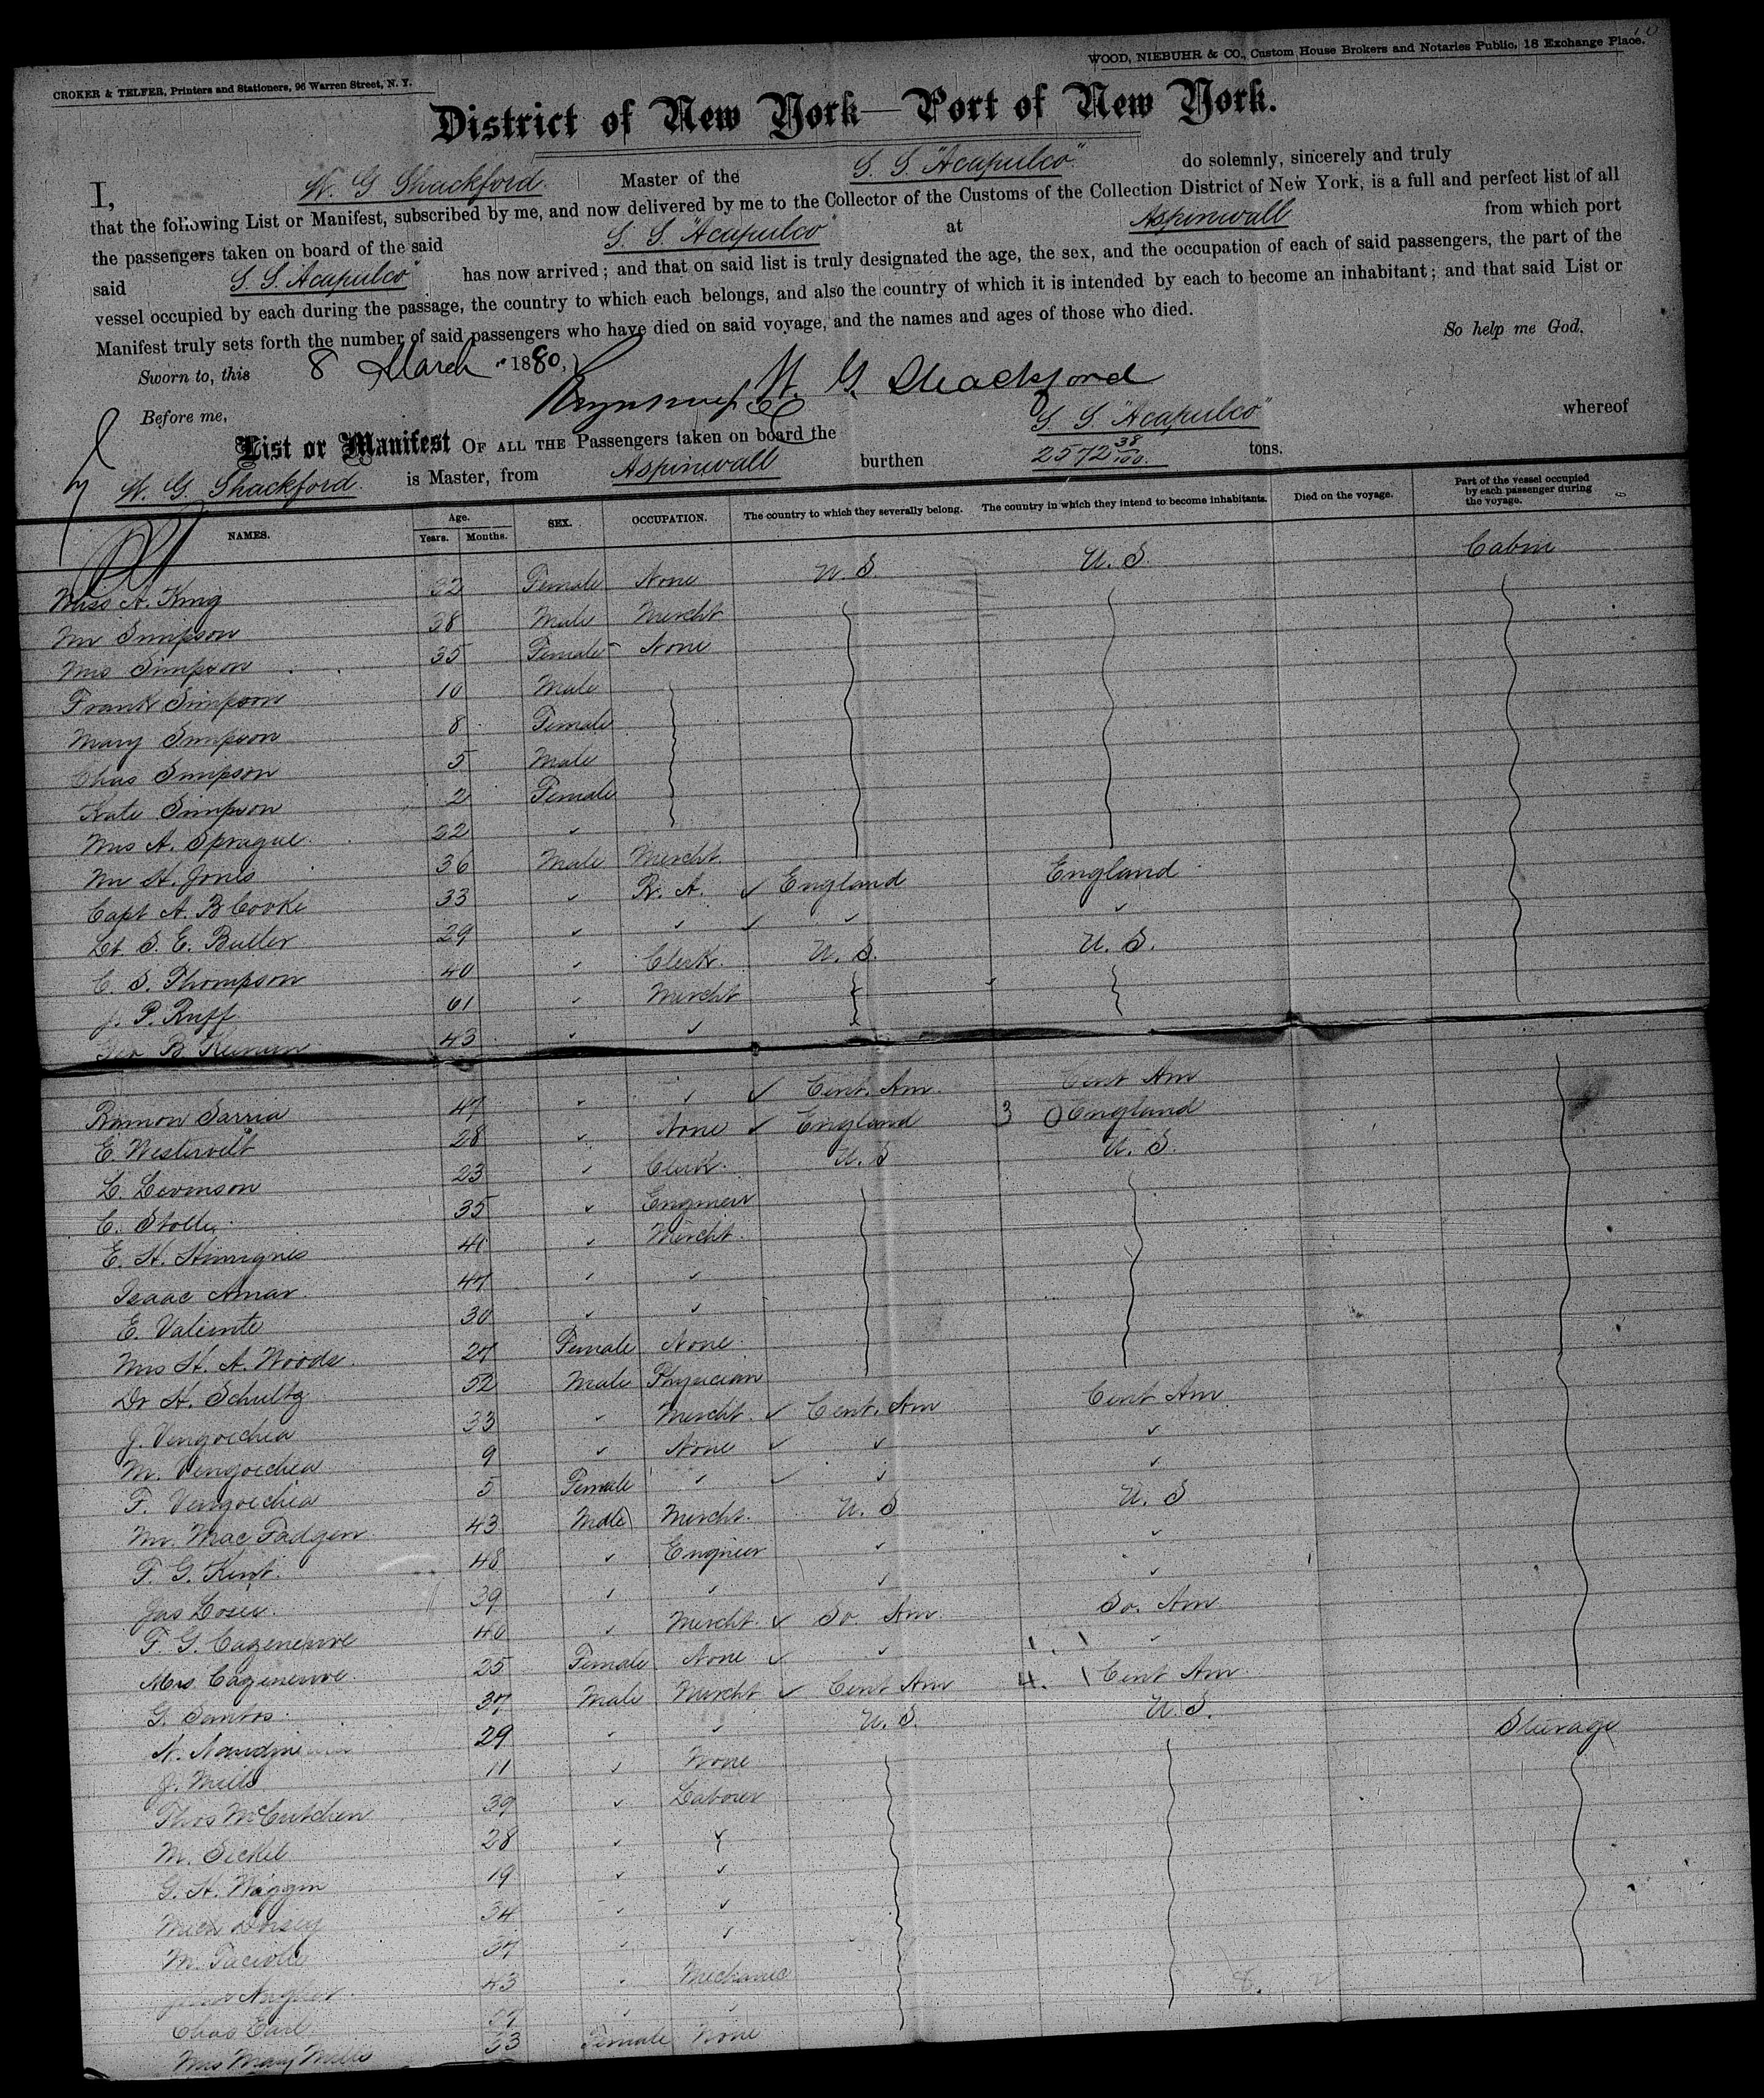 CROKER & TELFER, Printers and Stationers, 96 Warren Street, N. Y.
WOOD, NIEBUHR & CO., Custom House Brokers and Notaries Public, 18 Exchange Place.
District of New York—Port of New York.
I, W. G Shackford. Master of the S. S. "Acapulco". do solemnly, sincerely and truly
that the following List or Manifest, subscribed by me, and now delivered by me to the Collector of the Customs of the Collection District of New York, is a full and perfect list of all
the passengers taken on board of the said S. S. "Acapulco" at Aspinwall from which port
said S. S. "Acapulco" has now arrived; and that on said list is truly designated the age, the sex, and the occupation of each of said passengers, the part of the
vessel occupied by each during the passage, the country to which each belongs, and also the country of which it is intended by each to become an inhabitant; and that said List or
Manifest truly sets forth the number of said passengers who have died on said voyage, and the names and ages of those who died.
So help me God,
Sworn to, this 8 March 1880,
W. G. Shackford
Before me,
List or Manifest OF ALL THE Passengers taken on board the S. S "Acapulco" whereof
W. G. Shackford. is Master, from Aspinwall burthen 2572 38/100. tons.
NAMES. Age. Years. Months. SEX. OCCUPATION. The country to which they severally belong. The country in which they intend to become inhabitants. Died on the voyage. Part of the vessel occupied by each passenger during the voyage.
Miss A. King 32 Female None U. S. U. S. Cabin
Mr Simpson 38 Male Mercht
Mrs Simpson 35 Female None
Frank Simpson 10 Male
Mary Simpson 8 Female
Chas Simpson 5 Male
Kate Simpson 2 Female
Mrs A. Sprague 22 "
Mr H. Jones 36 Male Mercht
Capt A. B Cooke 33 " R. A. ✓ England England
Lt. S. E. Butler 29 " " ✓ " "
C. S. Thompson 40 " Clerk. U. S. U. S.
J. P. Ruff 61 " Mercht
Geo B. 43 " "
Ramon Sarria 47 " " ✓ Cent. Am. Cent Am
E. Westervelt 28 " None ✓ England 3 0 England
L. Levinson 23 " Clerk. U. S U. S.
C. 35 " Engineer
E. H. 41 " Mercht.
Isaac Amar. 47 " "
E. Valiente 30 " "
Mrs H. A. Woods. 27 Female None
Dr H. Schultz 52 Male Physician
J. Vengoechea 33 " Mercht. ✓ Cent. Am Cent Am
M. Vengoechea 9 " None ✓ " "
F. Vengoechea 5 Female " ✓ " "
Mr. Mac Fadgen 43 Male Mercht. U. S U. S
F. G. Kent. 48 " Engineer " "
Jas 39 " " " "
F. G. Cazeneuve 40 " Mercht. ✓ So. Am. So. Am
Mrs Cazeneuve. 25 Female None ✓ " "
G. Santos. 37 Male Mercht ✓ Cent Am 4. Cent Am
29 " " U. S. U. S. Steerage
J. Mills 11 " None
Thos McCutchen 39 " Laborer
M. Sickel 28 " "
G. A. Wiggin 19 " "
Mich Dorsey 34 " "
M. 37 " "
43 " Mechanic
Chas Earl 37 " "
Mrs Mary Mills 33 Female None